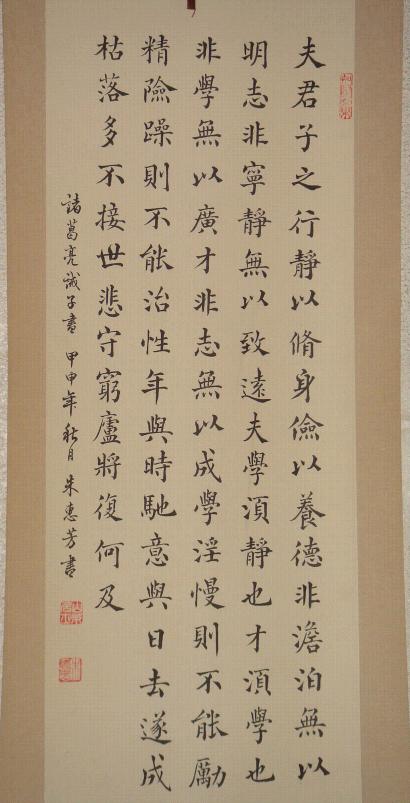 夫君子之行靜以脩身儉以養德非澹泊無以
明志非寧靜無以致遠夫學須靜也才須學也
非學無以廣才非志無以成學淫慢則不能勵
精險躁則不能治性年與時馳意與日去遂成
枯落多不接世悲守窮廬將復何及
諸葛亮誡子書 甲申年秋月 朱惠芳書